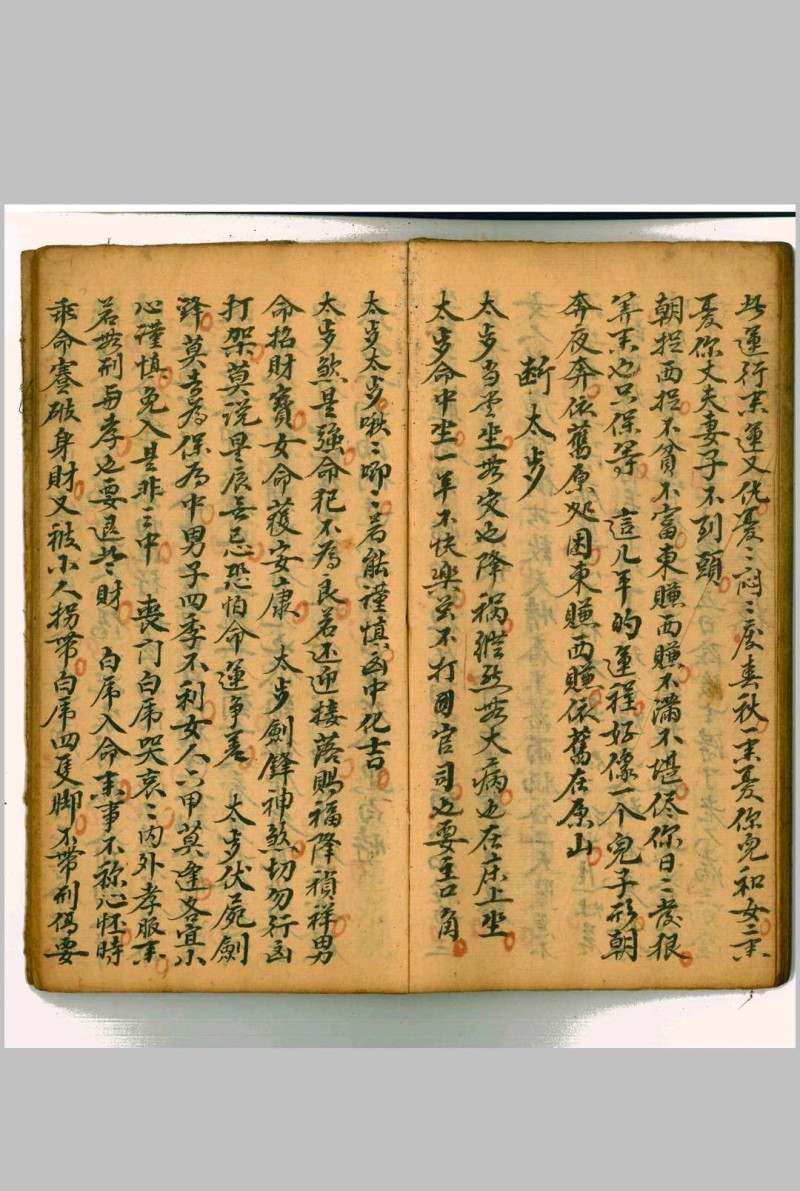 此運行來運又低憂〻悶〻度春秋一來憂你兒和女二來
憂你丈夫妻子不到頭
朝捉西捉不貧不富東賺西賺不滿不堪侭你日〻發狠
等來也只保等 這几年的運程好像一个兒子形朝
奔夜奔依舊原处困東賺西賺依舊在原山
断太歩
太歩当堂坐無灾也降禍縱然無大病也在床上坐
太歩命中坐一年不快樂若不打囬官司也要至口角
太歩太歩啾〻唧〻若能謹慎凶中化吉
太歩煞是強命犯不為良若还迎接落賜福降禎祥男
命招財寶女命獲安康 太歩劍鋒神煞切勿行凶
打架莫說星辰無忌恐怕命運争差 太歩伏屍劍
鋒莫去為保為中男子四季不利女人六甲莫逢各宜小
心謹慎免入是非之中 喪門白虎哭哀〻内外孝服來
若無刑与孝也要退於財 白虎入命來事不称心怀時
乖命蹇破身財又被小人拐帶白虎四隻脚不帶刑傷要